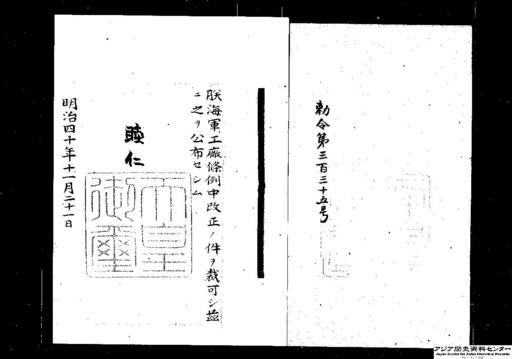 勅令第三百三十五号
朕海軍工廠條例中改正ノ件ヲ裁可シ茲
ニ之ヲ公布セシム
睦仁
天皇
御璽
明治四十年十一月二十一日
アジア歴史資料センター
Japan Center for Asian Historical Records